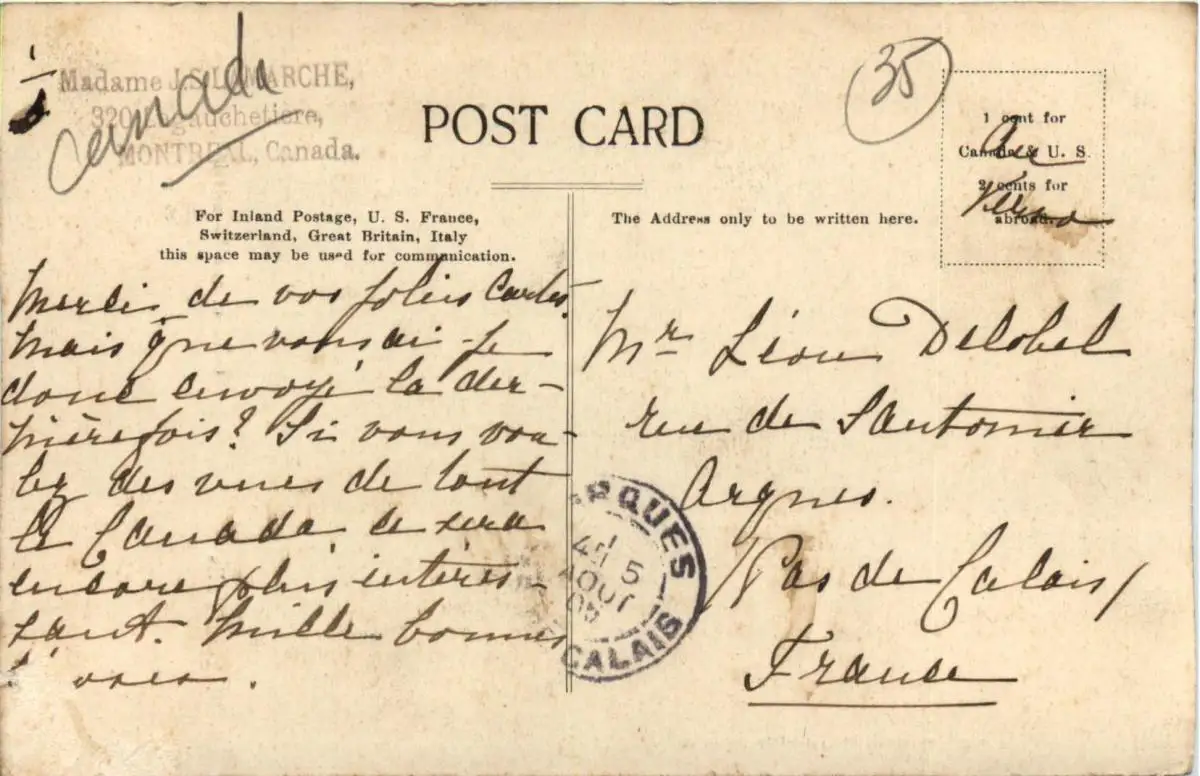 Madame J.S. LAMARCHE,
320 Lagauchetiere,
MONTREAL, Canada.
Canada
35
POST CARD
1 cent for
Canada & U. S.
2 cents for
abroad.
Au
Verso
For Inland Postage, U. S. France,
Switzerland, Great Britain, Italy
this space may be used for communication.
The Address only to be written here.
Merci de vos jolies cartes.
Mais que vous ai-je
donc envoyé la der-
nière fois? Si vous vou-
lez des vues de tout
le Canada, ce sera
encore plus intéres-
sant. Mille bonnes
Mr Léon Delobel
rue de Santomier
Arques.
Pas de Calais/
France
ARQUES
5
AOUT
CALAIS